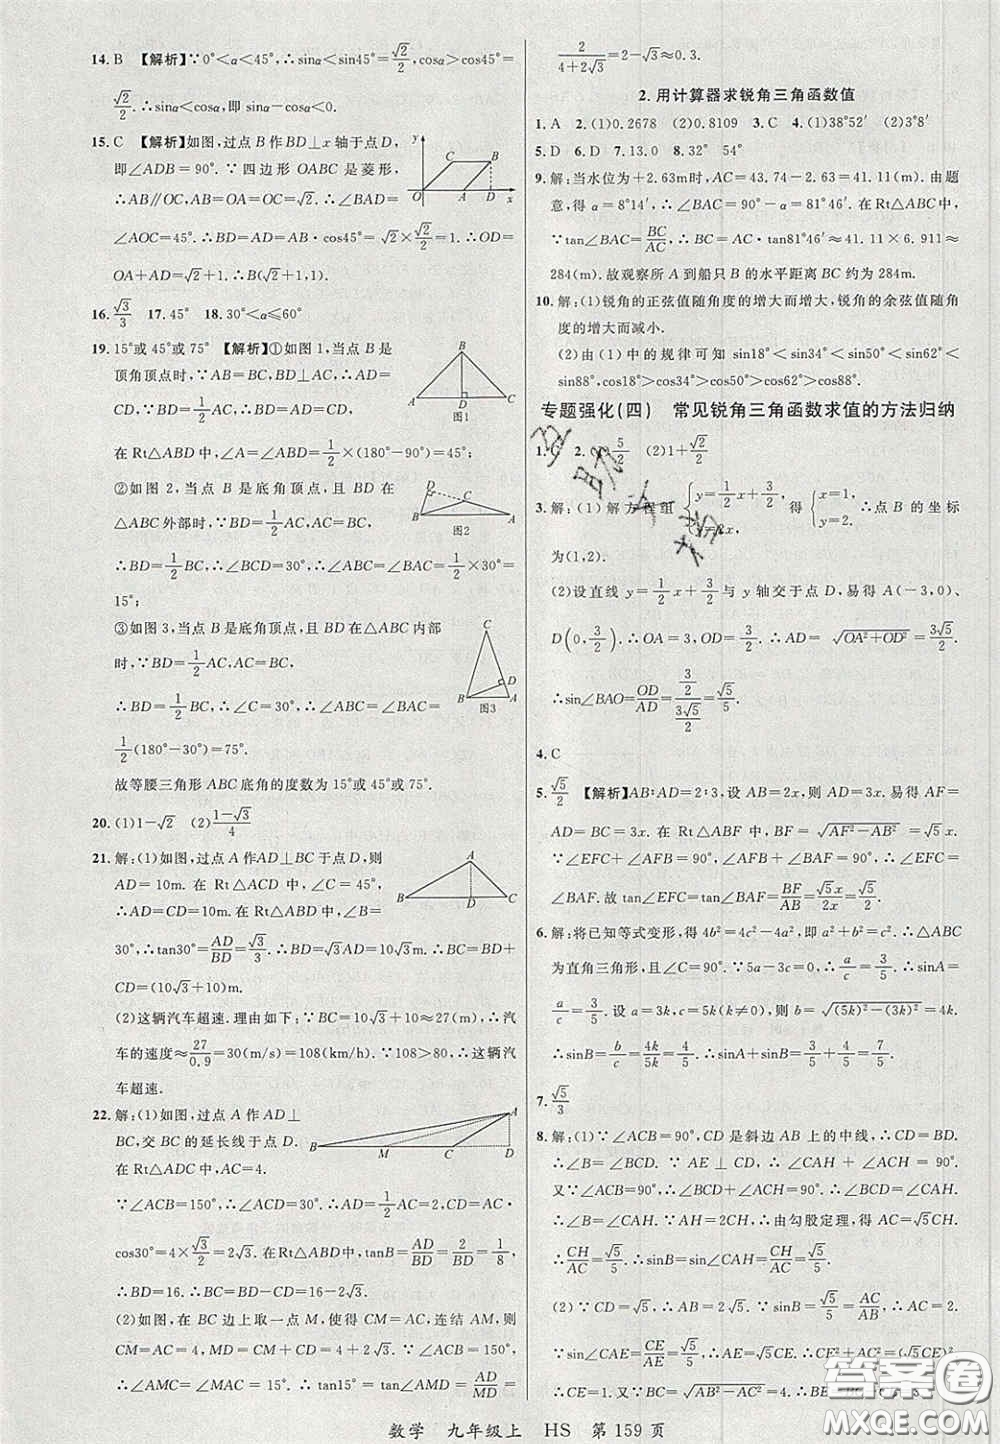 14. B 【解析】∵0°<α<45°,∴sinα<sin45°=√2/2,cosα>cos45°=
√2/2.∴sinα<cosα,即 sinα-cosα<0.
15. C 【解析】如图,过点 B 作 BD⊥x 轴于点 D,
即∠ADB=90°.∵四边形 OABC 是菱形,
∴AB∥OC,AB=OA=OC=√2.∴∠BAD=
∠AOC=45°.∴BD=AD=AB·cos45°=√2×√2/2=1.∴OD=
OA+AD=√2+1.∴B(√2+1,1).
16. √3/3 17. 45° 18. 30°<α≤60°
19. 15°或 45°或 75° 【解析】①如图 1,当点 B 是
顶角顶点时,∵AB=BC,BD=1/2AC,∴AD=BD.
图1
在 Rt△ABD 中,∠A=∠ABD=1/2×(180°-90°)=45°;
②如图 2,当点 B 是底角顶点,且 BD 在
△ABC 外部时,∵BD=1/2AC,AC=BC,
图2
∴BD=1/2BC,∴∠BCD=30°.∴∠ABC=1/2×30°=
15°;
③如图 3,当点 B 是底角顶点,且 BD 在△ABC 内部
时,∵BD=1/2AC,AC=BC,
∴BD=1/2BC,∴∠C=30°.∴∠ABC=∠A=
图3
1/2(180°-30°)=75°.
故等腰三角形 ABC 底角的度数为 15°或 45°或 75°.
20. (1)1-√2 (2)(1-√3)/4
21. 解:(1)如图,过点 A 作AD⊥BC 于点 D,则
AD=10m.在 Rt△ACD 中,∵∠C=45°,
∴AD=CD=10m.在 Rt△ABD 中,∵∠B=
30°,∴tan30°=AD/BD=√3/3.∴BD=√3AD=10√3m.∴BC=BD+
CD=(10√3+10)m.
(2)这辆汽车超速.理由如下:∵BC=10√3+10≈27m,∴汽
车的速度≈27/0.9=30(m/s)=108(km/h).∵108>80,∴这辆汽
车超速.
22. 解:(1)如图,过点 A 作 AD⊥
BC,交 BC 的延长线于点 D.
在 Rt△ADC 中,AC=4.
∵∠ACB=150°,∴∠ACD=30°.∴AD=1/2AC=2,CD=AC·
cos30°=4×√3/2=2√3.在 Rt△ABD 中,tanB=AD/BD=2/BD=1/8,
∴BD=16.∴BC=BD-CD=16-2√3.
(2)如图,在 BC 边上取一点 M,使得 CM=AC,连结 AM,则
CM=AC=4,MD=CM+CD=4+2√3.∵∠ACB=150°,
∴∠AMC=∠MAC=15°.∴tan15°=tan∠AMD=AD/MD=
2/(4+2√3)=2-√3≈0.3.
2. 用计算器求锐角三角函数值
1. A 2. (1)0.2678 (2)0.8109 3. C 4. (1)38°52′ (2)3°8′
5. D 6. D 7. 13.0 8. 32° 54°
9. 解:当水位为+2.63m时,AC=43.74-2.63=41.11(m).由题
意,得 α=8°14′,∴∠BAC=90°-α=81°46′.在 Rt△ABC 中,
∵tan∠BAC=BC/AC,∴BC=AC·tan81°46′≈41.11×6.911≈
284(m).故观察所 A 到船只 B 的水平距离 BC 约为 284m.
10. 解:(1)锐角的正弦值随角度的增大而增大,锐角的余弦值随角
度的增大而减小.
(2)由(1)中的规律可知 sin18°<sin34°<sin50°<sin62°<
sin88°,cos18°>cos34°>cos50°>cos62°>cos88°.
专题强化(四) 常见锐角三角函数求值的方法归纳
1. C 2. 5/2 (2)1+√2/2
3. 解:(1)解方程组 y=1/2x+3/2, 得 x=1, y=2. ∴点 B 的坐标
为(1,2).
(2)设直线 y=1/2x+3/2与 y 轴交于点 D,易得 A(-3,0)、
D(0,3/2).∴OA=3,OD=3/2.∴AD=√(OA²+OD²)=3√5/2.
∴sin∠BAO=OD/AD=(3/2)/(3√5/2)=√5/5.
4. C
5. √5/2 【解析】AB∶AD=2∶3,设 AB=2x,则 AD=3x.易得 AF=
AD=BC=3x.在 Rt△ABF 中,BF=√(AF²-AB²)=√5x.
∵∠EFC+∠AFB=90°,∠AFB+∠BAF=90°,
∴∠EFC=∠BAF.故 tan∠EFC=tan∠BAF=BF/AB=√5x/2x=√5/2.
6. 解:将已知等式变形,得 4b²=4c²-4a²,即 a²+b²=c².∴△ABC
为直角三角形,且∠C=90°.∵5a-3c=0,∴a/c=3/5.∴sinA=
a/c=3/5.设 a=3k,c=5k(k≠0),则 b=√((5k)²-(3k)²)=4k.
∴sinB=b/c=4k/5k=4/5.∴sinA+sinB=3/5+4/5=7/5.
7. √5/3
8. 解:(1)∵∠ACB=90°,CD 是斜边 AB 上的中线,∴CD=BD.
∴∠B=∠BCD.∵AE⊥CD,∴∠ACH+∠CAH=90°.
又∵∠ACB=90°,∴∠BCD+∠ACH=90°.∴∠BCD=∠CAH.
又∵∠B=∠BCD,∴∠B=∠CAH.∵AH=2CH,∴由勾股定理,得 AC=√5CH.
∴CH/AC=√5/5.∴sin∠CAH=CH/AC=√5/5.∴sinB=√5/5.
(2)∵CD=√5,∴AB=2√5.∵sinB=√5/5=AC/AB,∴AC=2.
∵sin∠CAE=CE/AE=√5/5,∴AE=√5CE.∴CE²+AC²=AE²,
∴CE=1.∴BC=√(AB²-AC²)=4.∴BE=BC-CE=3.
数学 九年级上 HS 第 159 页
答案圈
MXQE.COM